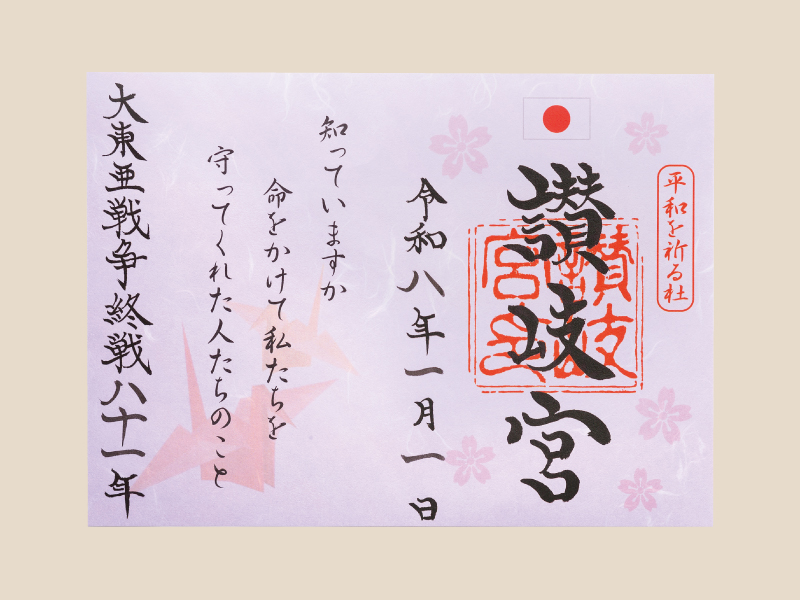 平和を祈る社
讃岐宮
令和八年一月一日
知っていますか
命をかけて私たちを
守ってくれた人たちのこと
大東亜戦争終戦八十一年